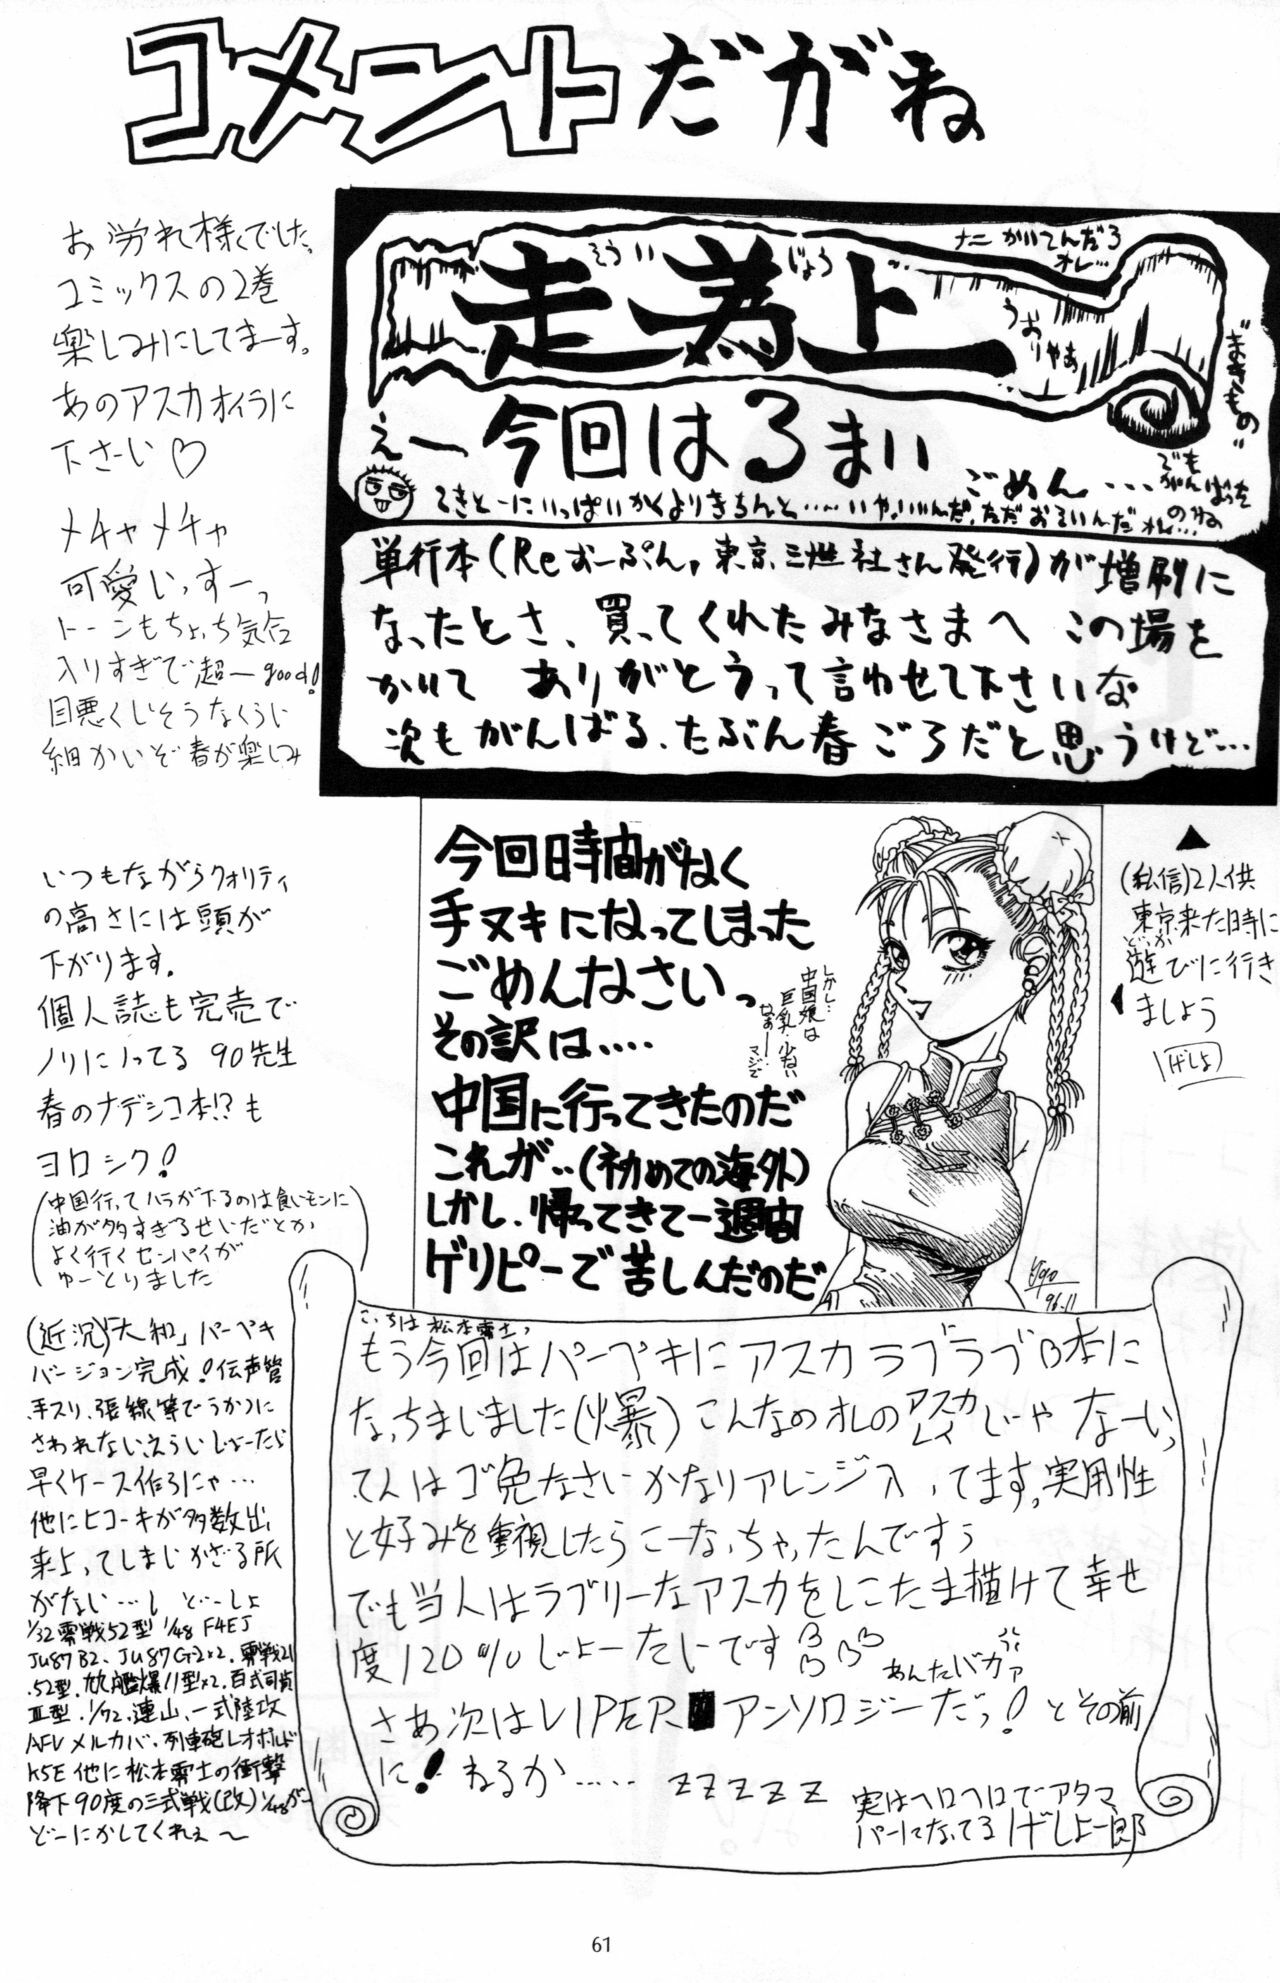 コメントだがね
お労れ様でした。
コミックスの2巻
楽しみにしてまーす。
あのアスカオイラに
下さーい♡
メチャメチャ
可愛いっすーっ
トーンもちょっち気合
入りすぎで超ーgood!
目悪くしそうなくらい
細かいぞ春が楽しみ
走為上
そうい じょう
ナニかいてんだろ
オレ…
うおりゃあ
"まきもの"
えー今回はるまい
ごめん…
でも
がんばった
のね
てきとーにいっぱいかくよりきちんと……いや、いいんだ、ただおそいんだオレ…
単行本(Reおーぷん,東京三世社さん発行)が増刷に
なったとさ、買ってくれたみなさまへ この場を
かりて ありがとうって言わせて下さいな
次もがんばる、たぶん春ごろだと思うけど…
いつもながらクォリティ
の高さには頭が
下がります。
個人誌も完売で
ノリにノッてる 90先生
春のナデシコ本!?も
ヨロシク!
(中国行ってハラが下るのは食いモンに
油が多すぎるせいだとか
よく行くセンパイが
ゆーとりました)
今回時間がなく
手ヌキになってしまった
ごめんなさいっ
その訳は‥‥
中国に行ってきたのだ
これが‥(初めての海外)
しかし、帰ってきて一週間
ゲリピーで苦しんだのだ
しかし…
中国娘は
巨乳少ない
なぁー…
マジで
96.11
▲
(私信)2人供
東京来た時に
どっか
遊びに行き
ましょう
げしょ
(近況)「大和」パーペキ
バージョン完成!伝声管
手スリ、張線等でうかつに
さわれない、えらいしょーたら
早くケース作ろにゃ…
他にヒコーキが多数出
来上ってしまいかざる所
がない…し どーしよ
1/32零戦52型 1/48 F4EJ
JU87B2、JU87G2×2、零戦21
.52型、九九艦爆11型×2.百式司偵
Ⅲ型.1/72.連山、一式陸攻
AFVメルカバ・列車砲レオポルド
K5E他に松本零士の衝撃
降下90度の三式戦(改)1/48が
どーにかしてくれぇ〜
こっちは松本零士っ
もう今回はパーペキにアスカラブラブB本に
なっちまいました(爆)こんなのオレのアスカ
レイじゃなーいっ
てんはゴ免なさいかなりアレンジ入ってます。実用性
と好みを重視したらこーなっちゃったんですぅ
でも当人はラブリーなアスカをしこたま描けて幸せ
度120%じょーたいです
あんたバカァ
さあ次はVIPER アンソロジーだっ!とその前
に! ねるか‥‥‥ zzzzz
実はヘロヘロでアタマ
パーになってる げしょ一郎
61